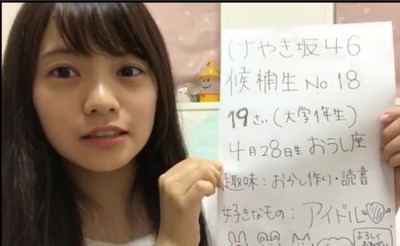 けやき坂46
候補生 No 18
19さい(大学1年生)
4月28日生 おうし座
趣味:おかし作り・読書
好きなもの:アイドル♡
よろしく